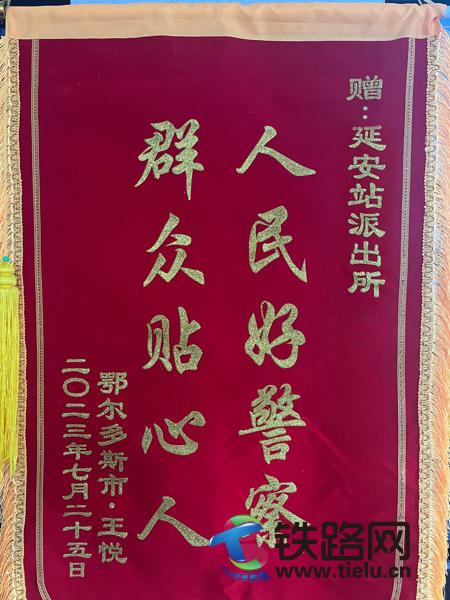 赠:延安站派出所
人民好警察
群众贴心人
鄂尔多斯市·王悦
二〇二三年七月二十五日
铁路网
www.tielu.cn